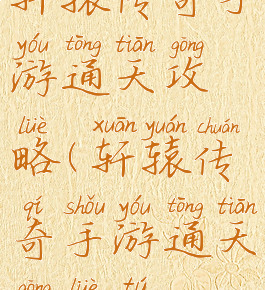 轩辕传奇手
yóu tōng tiān gōng
游通天攻
lüè xuān yuán chuán
略(轩辕传
qí shǒu yóu tōng tiān
奇手游通天
gōng lüè tú